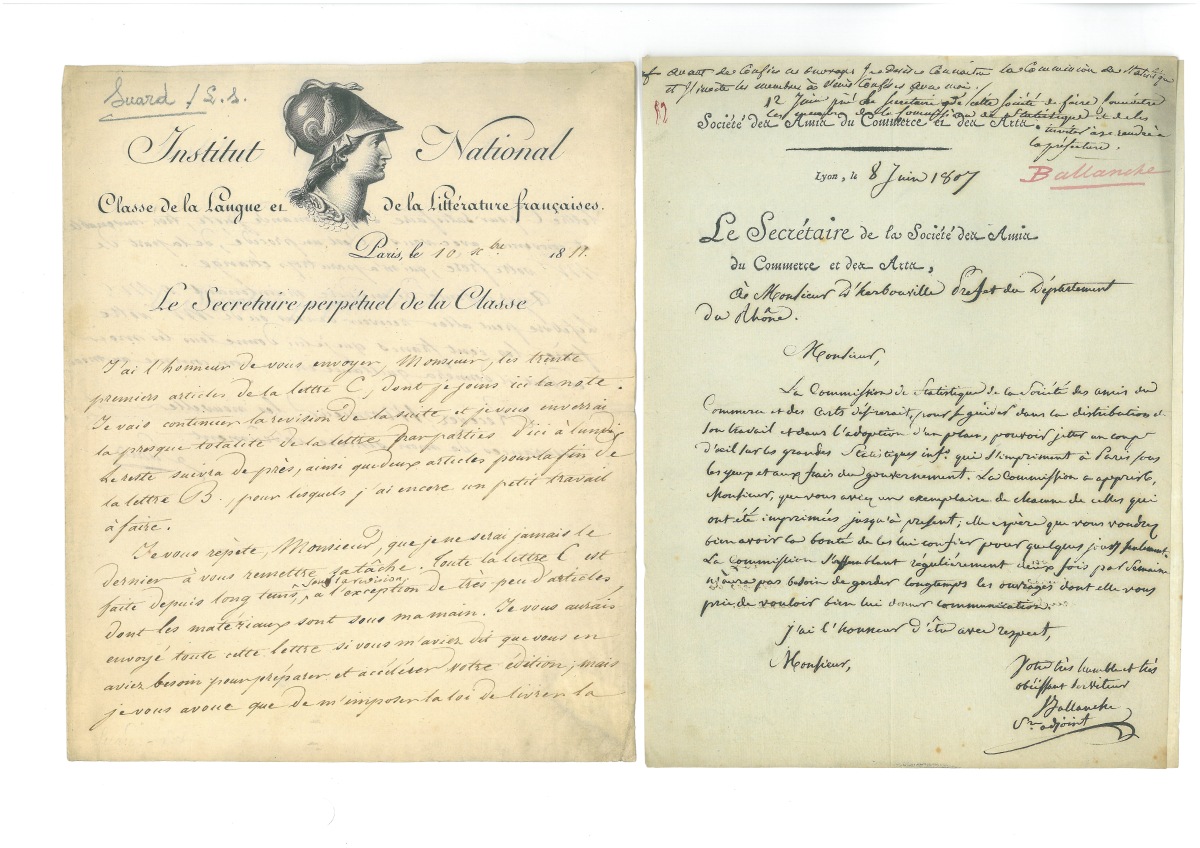 Suard / L. s.
Institut National
Classe de la Langue et de la Littérature françaises.
Paris, le 10 xbre 1811.
Le Secretaire perpétuel de la Classe
J'ai l'honneur de vous envoyer, Monsieur, les trente
premiers articles de la lettre C, dont je joins ici la note.
Je vais continuer la revision de la suite et je vous enverrai
la presque totalité de la lettre par parties d'ici à lundi;
le reste suivra de près, ainsi que deux articles pour la fin de
la lettre B., pour lesquels j'ai encore un petit travail
à faire.
Je vous répète, Monsieur, que je ne serai jamais le
dernier à vous remettre sa tâche. Toute la lettre C est
faite depuis long tems, sauf la revision, à l'exception de très peu d'articles
dont les matériaux sont sous ma main. Je vous aurais
envoyé toute cette lettre si vous m'aviez dit que vous en
aviez besoin pour préparer et accélérer votre édition; mais
je vous avoue que de m'imposer la loi de livrer la
avant de confier ces ouvrages je desire connaitre la Commission de Statistique
et j'invite les membres à venir conférer avec moi.
12 Juin prié le secretaire de cette société de faire connaitre
les membres de la Commission de Statistique et de les
inviter à se rendre à
la préfecture.
52
Société des Amis du Commerce et des Arts.
Ballanche
Lyon, le 8 Juin 1807
Le Secrétaire de la Société des Amis
du Commerce et des Arts,
à Monsieur D'herbouville Prefet du Département
du Rhône.
Monsieur,
La Commission de Statistique de la Société des amis du
Commerce et des Arts désirerait, pour se guider dans la distribution de
son travail et dans l'adoption d'un plan, pouvoir jeter un coup
d'œil sur les grandes Statistiques in f.° qui s'impriment à Paris, sous
les yeux et aux frais du gouvernement. La Commission a appris,
Monsieur, que vous aviez un exemplaire de chacune de celles qui
ont été imprimées jusqu'à present; elle espère que vous voudrez
bien avoir la bonté de les lui confier pour quelques jours seulement.
La Commission s'assemblant régulièrement deux fois par Semaine
n'aura pas besoin de garder longtemps les ouvrages dont elle vous
prie de vouloir bien lui donner communication.
J'ai l'honneur d'être avec respect,
Monsieur,
Votre très humble et très
obéissant serviteur
Ballanche
S.re adjoint